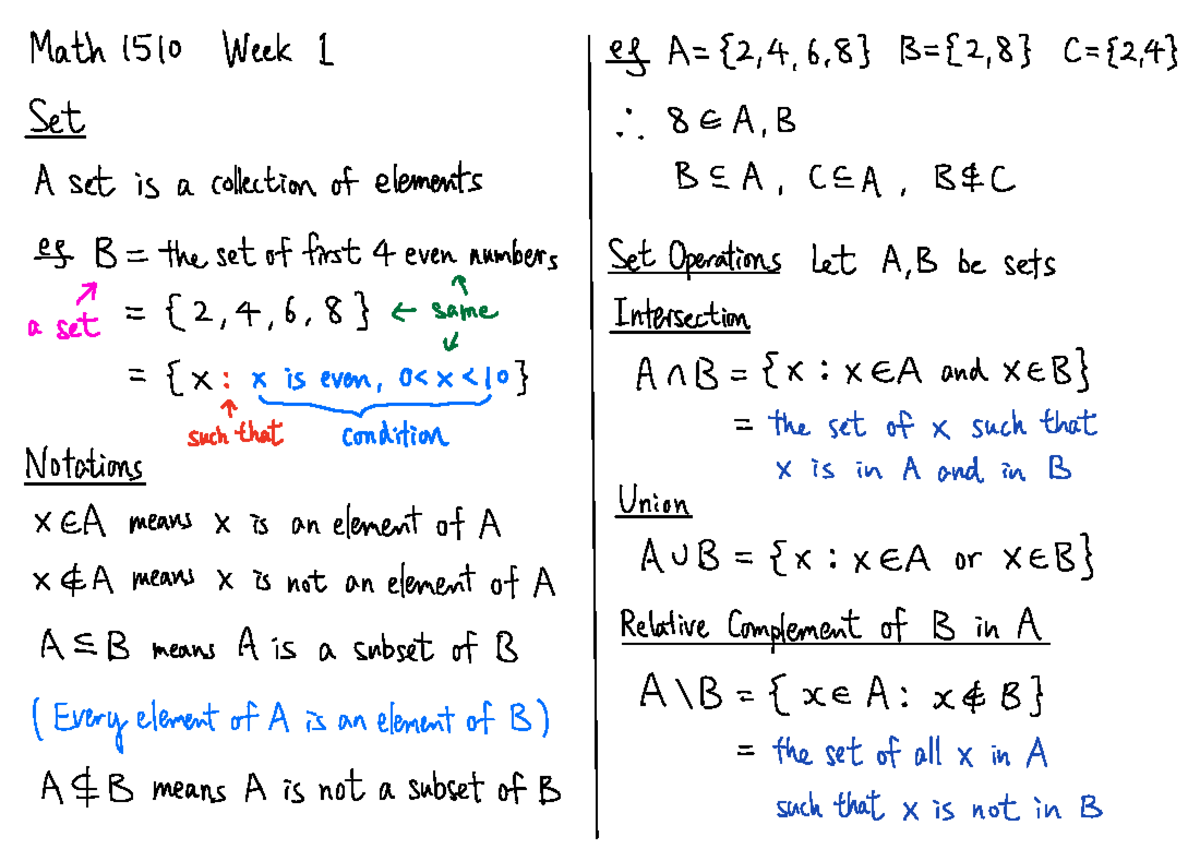 Math 1510 Week 1
Set
A set is a collection of elements
eg B = the set of first 4 even numbers
a set = {2, 4, 6, 8} ← same
= {x : x is even, 0 < x < 10}
such that condition
Notations
x ∈ A means x is an element of A
x ∉ A means x is not an element of A
A ⊆ B means A is a subset of B
(Every element of A is an element of B)
A ⊈ B means A is not a subset of B
eg A = {2, 4, 6, 8} B = {2, 8} C = {2, 4}
∴ 8 ∈ A, B
B ⊆ A, C ⊆ A, B ⊈ C
Set Operations Let A, B be sets
Intersection
A ∩ B = {x : x ∈ A and x ∈ B}
= the set of x such that
x is in A and in B
Union
A ∪ B = {x : x ∈ A or x ∈ B}
Relative Complement of B in A
A \ B = {x ∈ A : x ∉ B}
= the set of all x in A
such that x is not in B